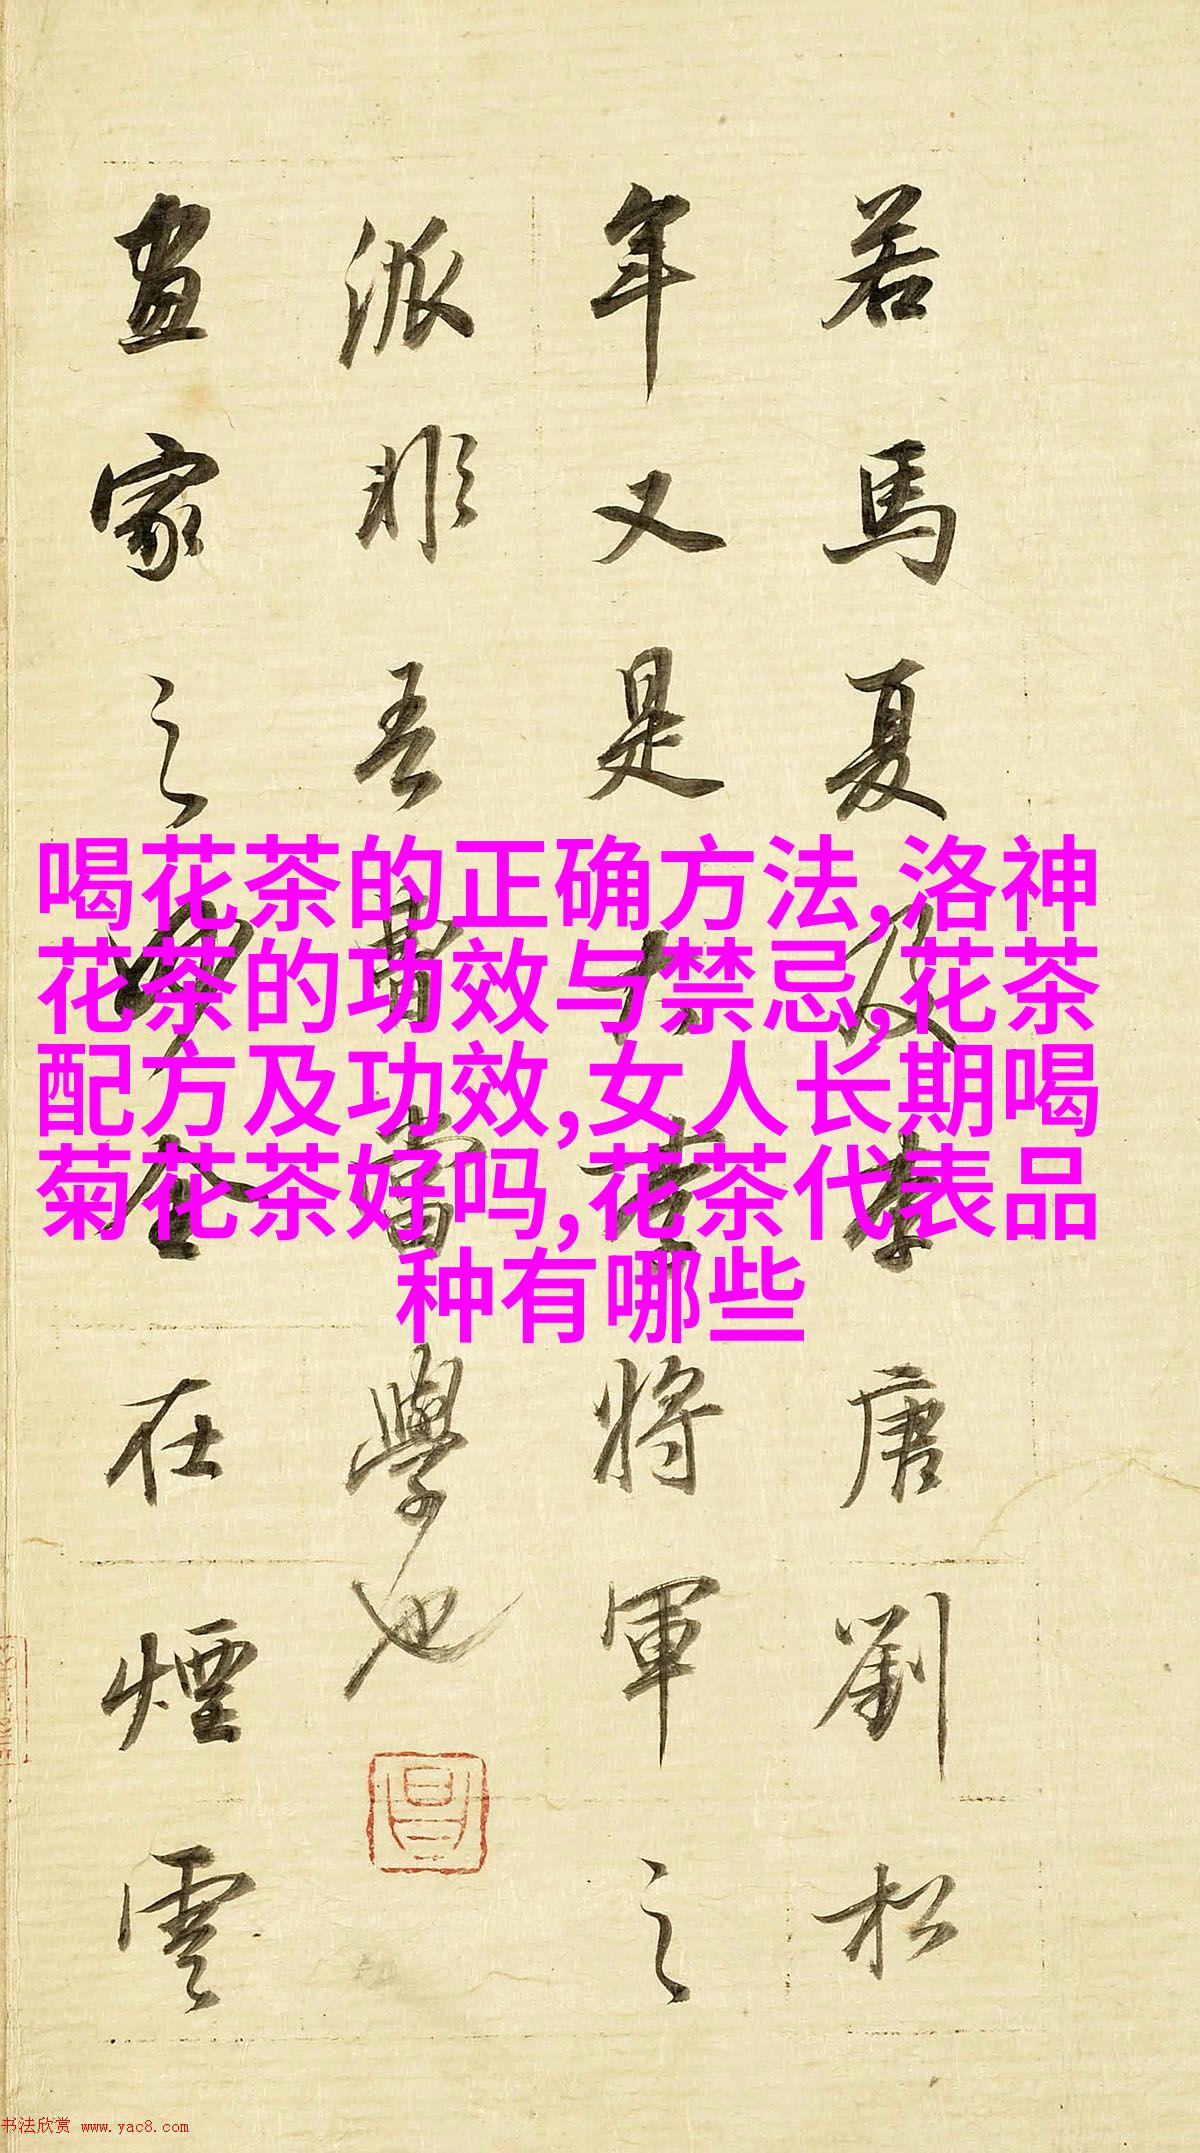 若馬夏及李唐劉松
年又是大李將軍之
派非吾曹當學也
畫家之妙全在煙雲
喝花茶的正确方法,洛神
花茶的功效与禁忌,花茶
配方及功效,女人长期喝
菊花茶好吗,花茶代表品
种有哪些
书法欣赏 www.yac8.com